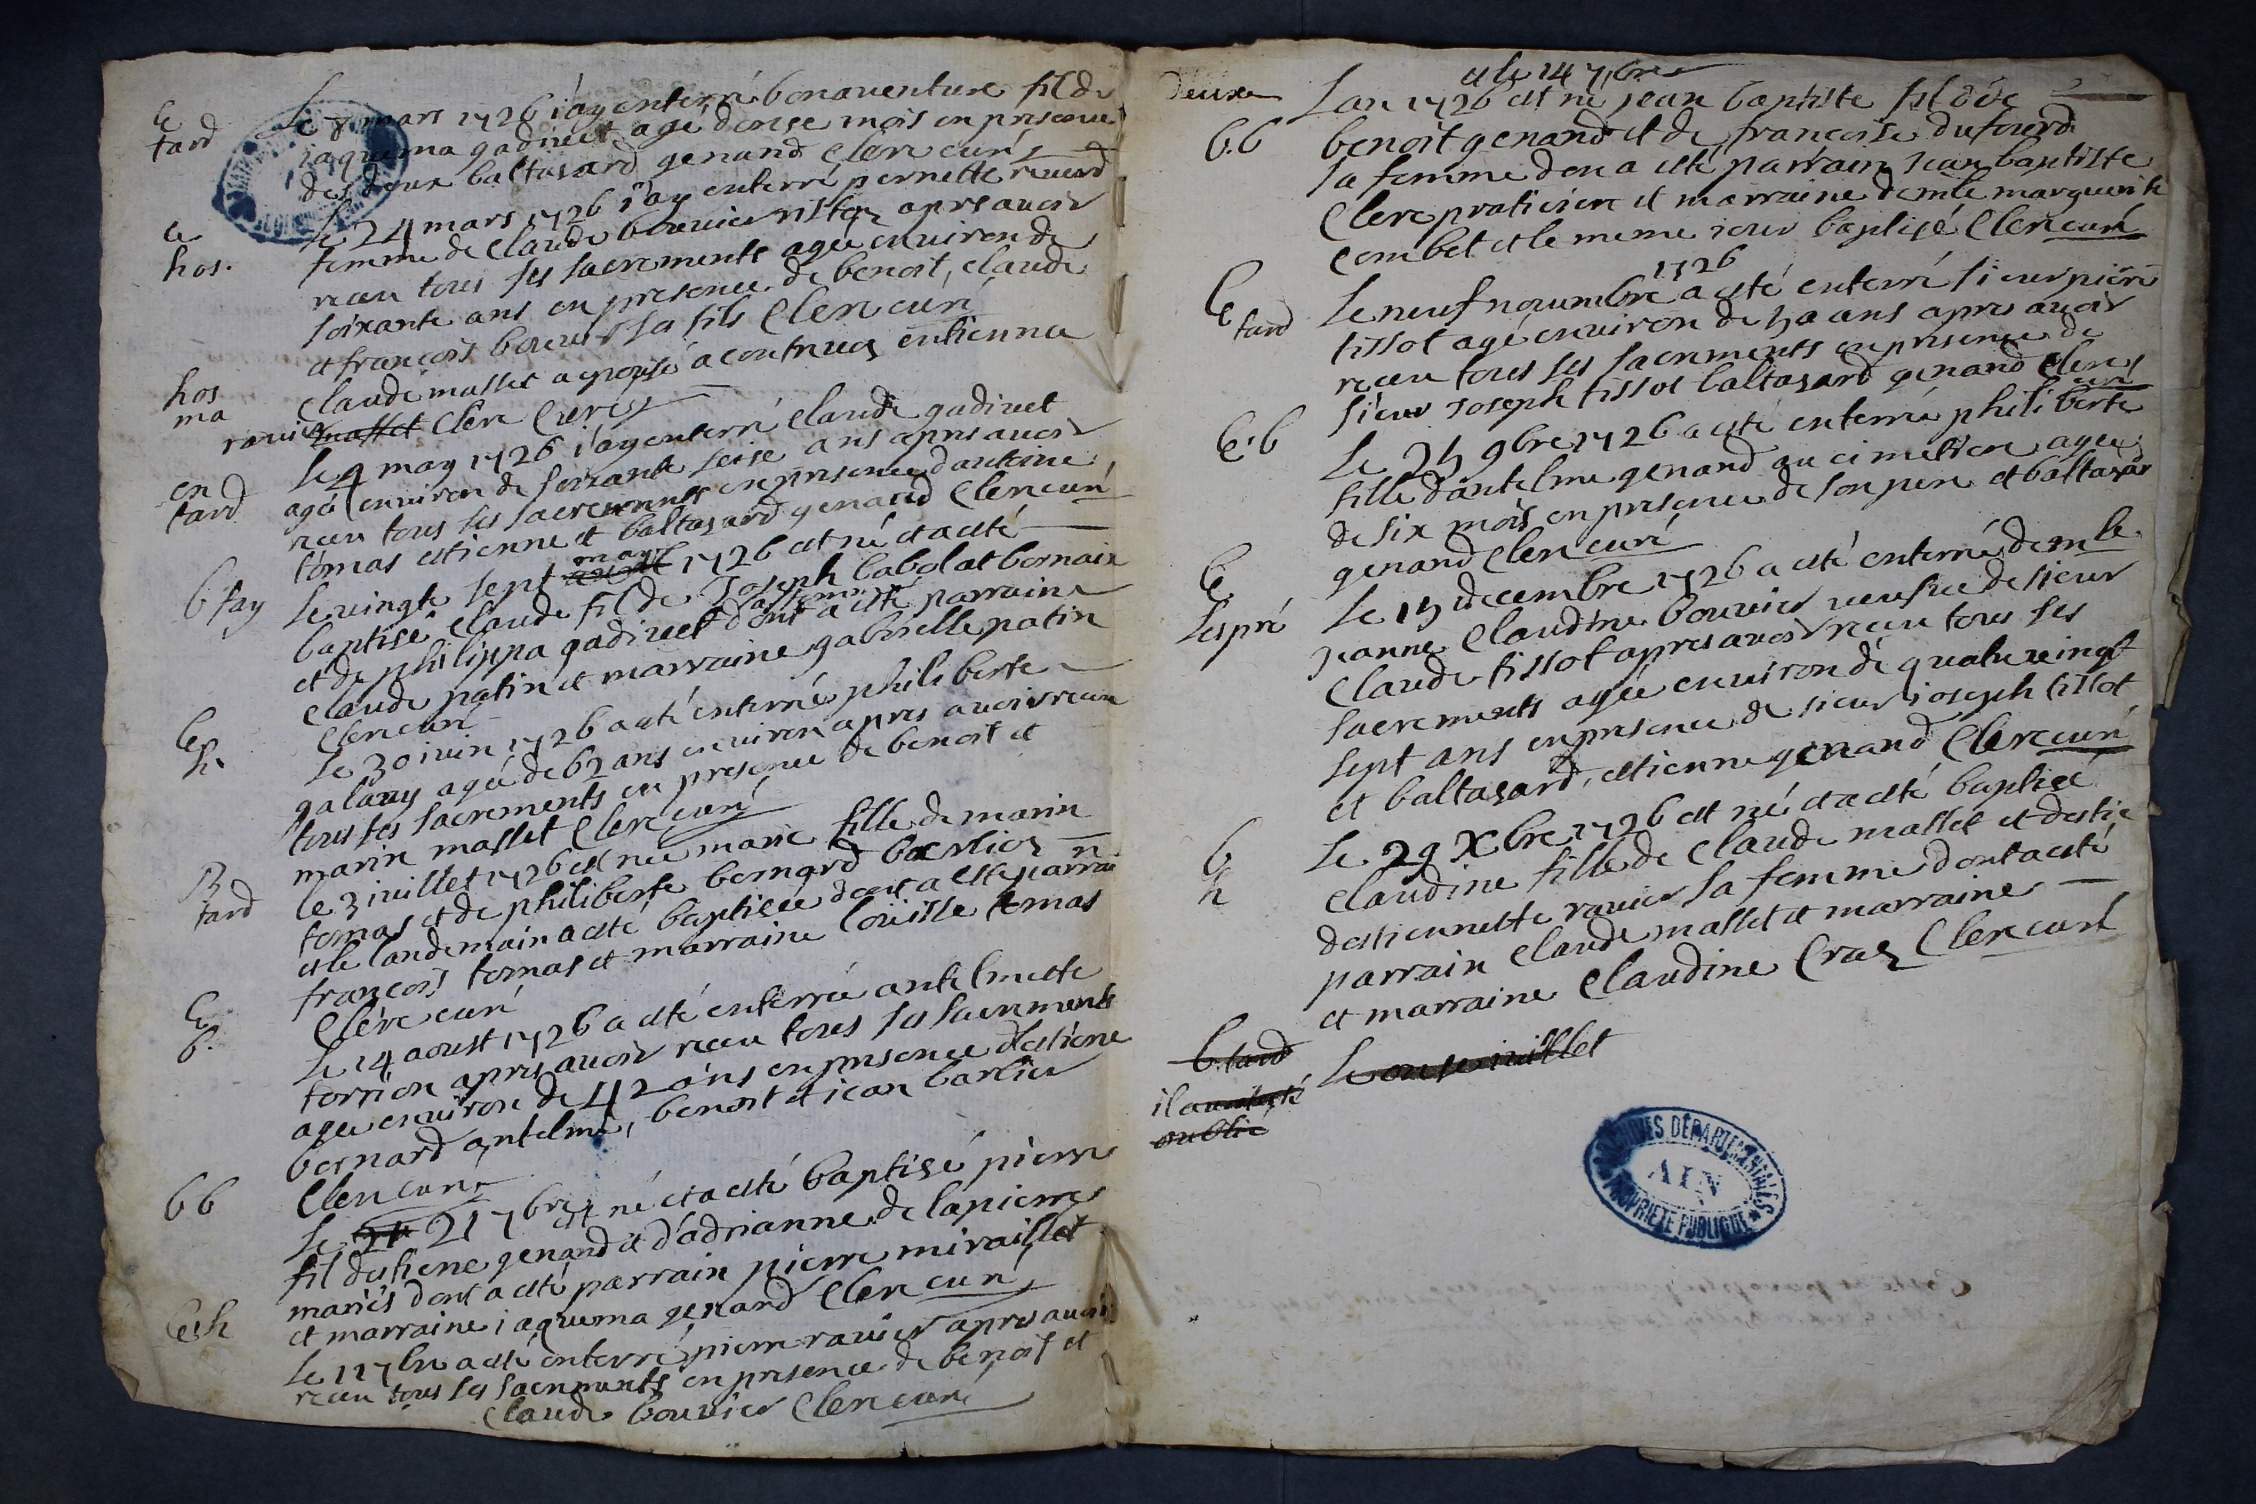 e
tard
Le 8 mars 1726 i'ay enterré bonaventure fil de
iaquema gadiuet agé d'onse mois en presence
des deux baltasard genand Clerc curé
e
hos.
Le 24 mars 1726 i'ay enterré pernette
femme de Claude bouuier apres auoir
receu tous ses sacrements agée enuiron de
soixante ans en presence de benoit, claude
et françois bouuier ses fils Clerc curé
hos
ma
Claude masset a epousé a contreuoz entienna
rauier masset Clerc Curé
en
tard
Le 4 may 1726 i'ay enterré Claude gadiuet
agé enuiron de soixante seise ans apres auoir
receu tous ses sacrements en presence dantoine
tomas estienne et baltasard genand Clerc curé
b fay
Le vingte sept may 1726 est né et a esté
baptisé claude fil de Joseph babolat bornain
et de philippa gadiuet sa femme dont a esté parrain
Claude patin et marraine gabrielle patin
Clerc curé
e
h.
Le 30 iuin 1726 a esté enterré philiberte
galaxy agée de 62 ans enuiron apres auoir receu
tous ses sacrements en presence de benoit et
marin masset Clerc curé
B
tard
le 3 iuillet 1726 est nee marie fille de marin
tomas et de philiberte bernard barlioz
et le landemain a esté baptisée dont a esté parrain
françois tomas et marraine loüisse tomas
Clerc curé
e
b.
Le 14 aoust 1726 a esté enterrée antelmette
torrion apres auoir receu tous ses sacrements
agée enuiron de 42 ans en presence d'estiene
bernard antelme, benoit et iean barlier
Clerc curé
b b
Le 21 7bre est né et a esté baptisé pierre
fil d'estiene genand et d'adrianne de lapierre
mariés dont a esté parrain pierre miraillet
et marraine iaquema genand Clerc curé
e. h
Le 12 7bre a esté enterré pierre rauier apres auoir
receu tous ses sacrements en presence de benoit et
Claude bouuier Clerc curé
deuxe
et le 14 7bre
b. b
Lan 1726 est né jean baptiste fil de
benoit genand et de françoise dufourd
sa femme don a esté parrain iean baptiste
Clerc praticien et marraine demle marguerite
Combet et le meme iour baptisé Clerc curé
e
tard
Le neuf nouembre 1726 a esté enterré sieur pierre
tissot agé enuiron de ans apres auoir
receu tous ses sacrements en presence de
sieur Joseph tissot baltasard genand Clerc
curé
e. b
Le 25 9bre 1726 a esté enterrée philiberte
fille d'antelme genand au cimetiere agée
de six mois en presence de son pere et baltasar
genand Clerc curé
e
Lespré
Le 15 decembre 1726 a esté enterrée demle
jeanne Claudine bouuier veufue de sieur
Claude tissot apres auoir receu tous ses
sacrements agée enuiron de quatre vingt
sept ans en presence de sieur ioseph tissot
et baltasard, estienne genand Clerc curé
b
h
Le 29 Xbre 1726 est né et a esté baptisée
Claudine fille de Claude masset et destie
destiennette rauier sa femme dont a esté
parrain Claude masset et marraine
et marraine Claudine Craz Clerc curé
b. tard
Le onse iuillet
il a esté
oublié
ARCHIVES DÉPARTEMENTALES
AIN
PROPRIÉTÉ PUBLIQUE